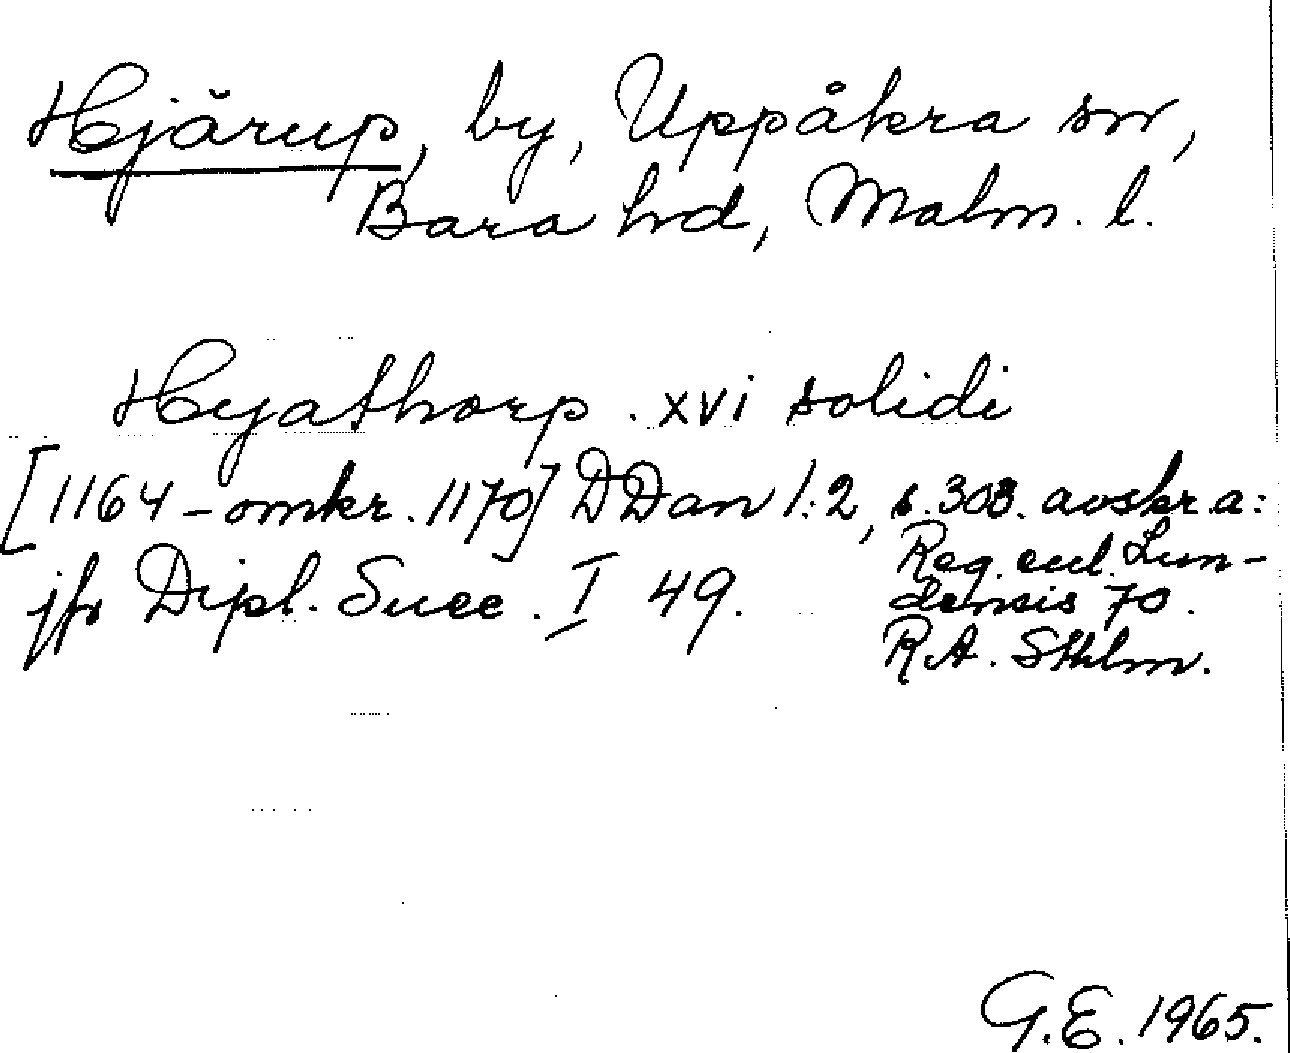 Hjärup, by, Uppåkra sn,
Bara hd, Malm. l.
Hyathorp. xvi solidi
[1164 – omkr. 1170] DDan 1:2, s. 303. avskr a:
Reg. eccl. Lun-
jfr Dipl. Suec. I 49.
densis 70.
R.A. Sthlm.
G.E. 1965.